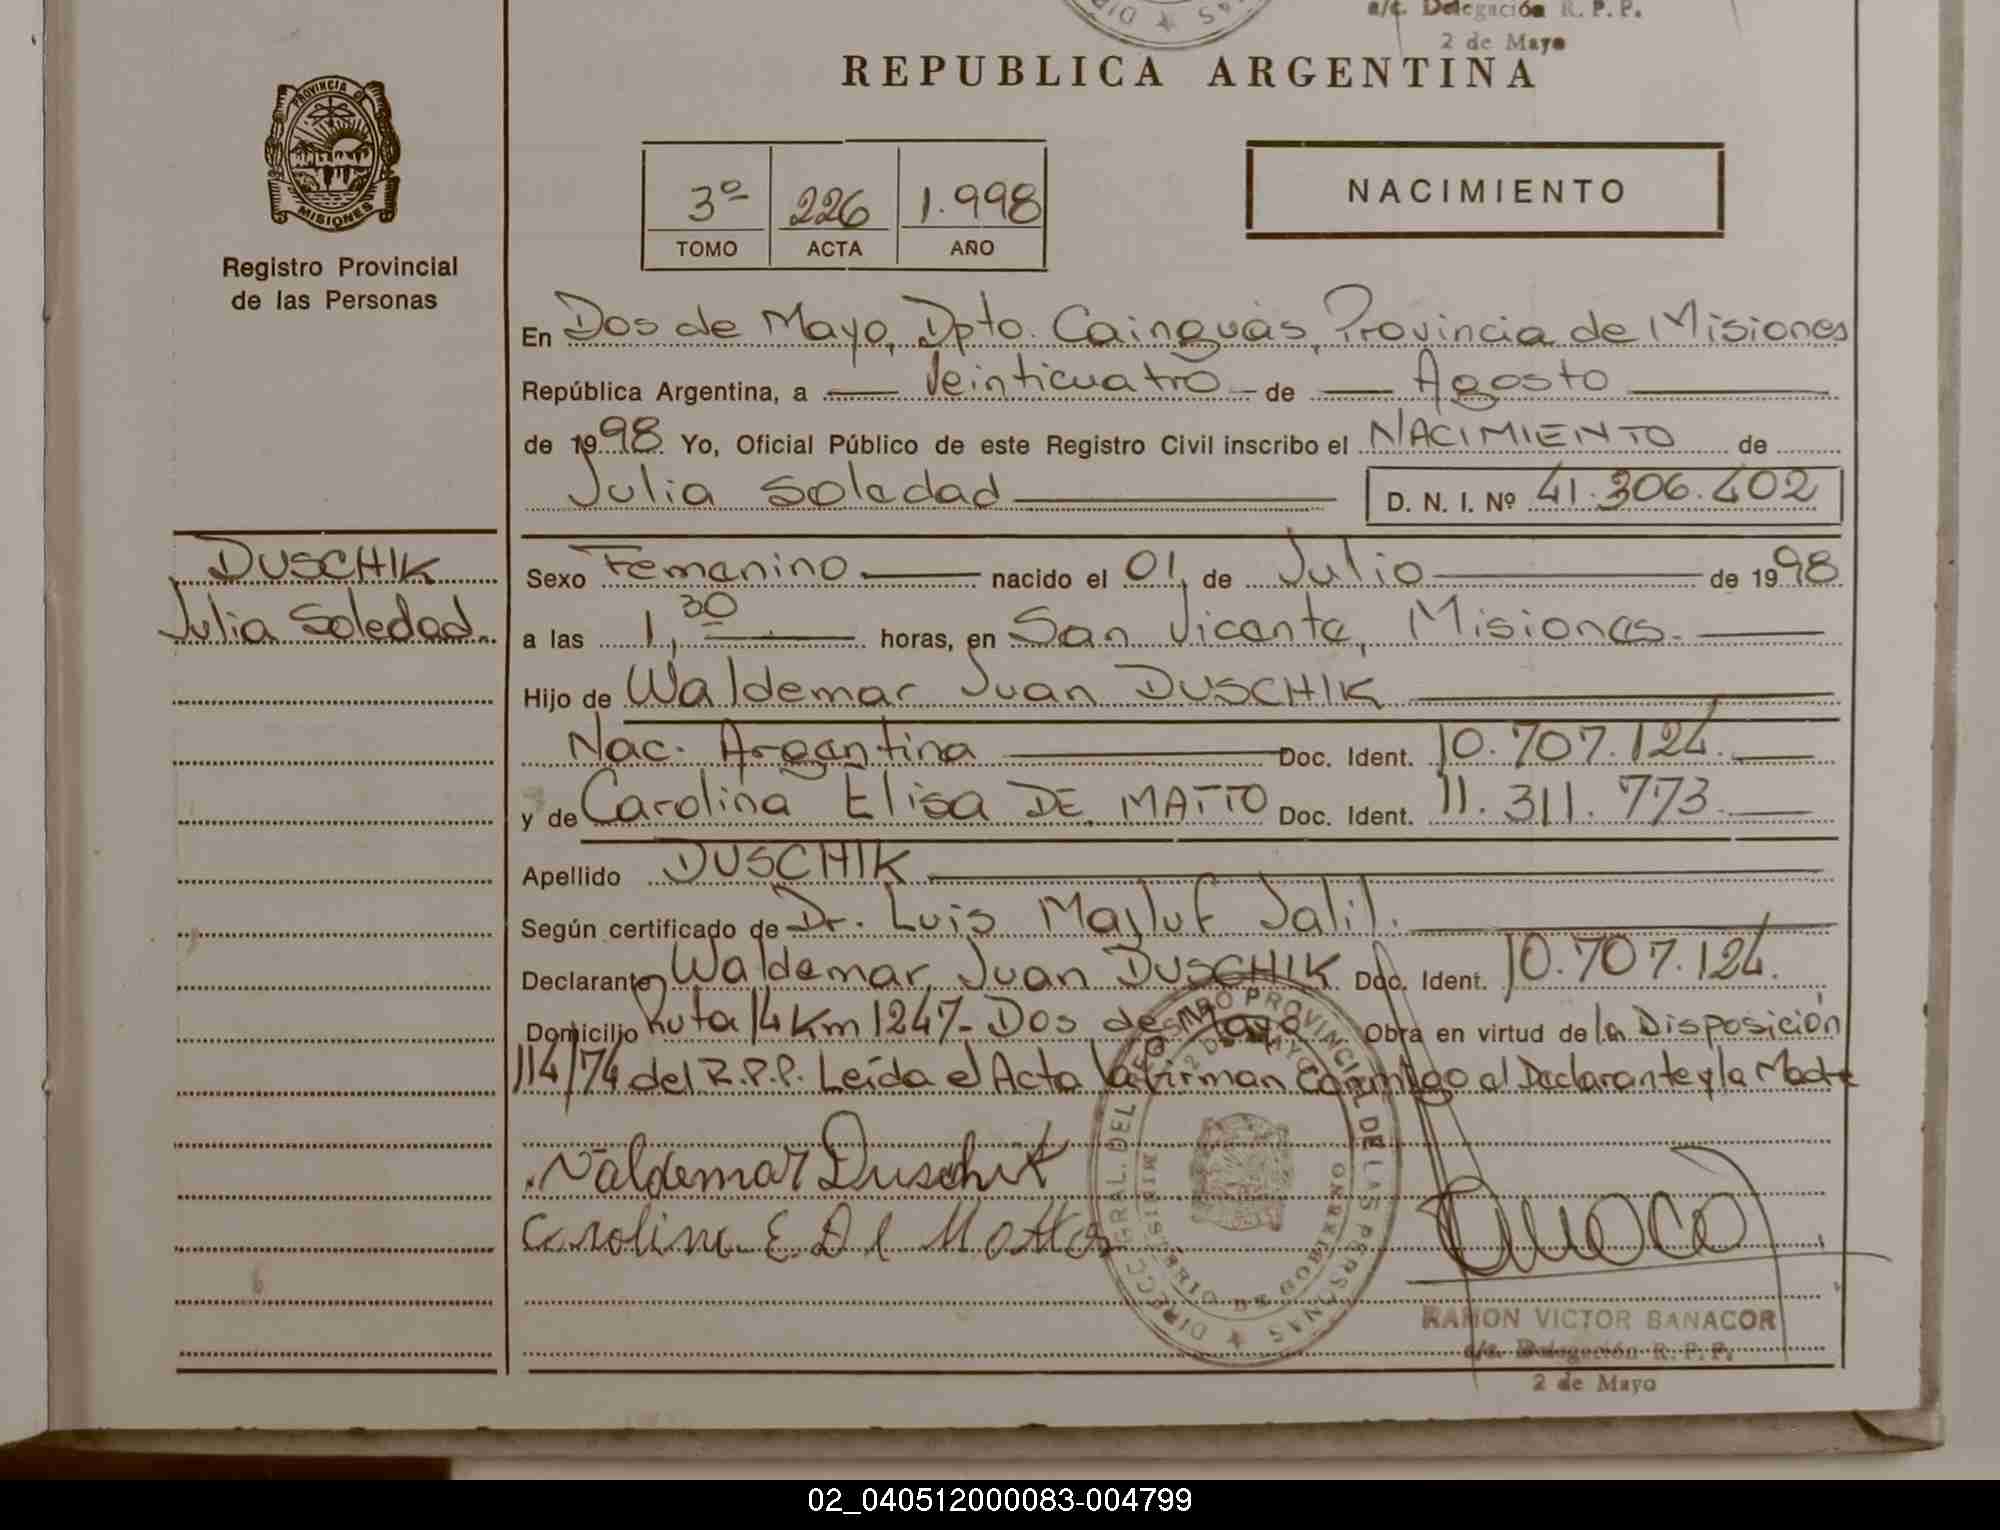 a/c. Delegación R. P. P.
2 de Mayo
REPUBLICA ARGENTINA
PROVINCIA DE
MISIONES
Registro Provincial
de las Personas
3º 226 1.998
TOMO ACTA AÑO
NACIMIENTO
En Dos de Mayo, Dpto. Cainguás, Provincia de Misiones
República Argentina, a Veinticuatro de Agosto
de 1998 Yo, Oficial Público de este Registro Civil inscribo el NACIMIENTO de
Julia Soledad D. N. I. Nº 41.306.402
DUSCHIK
Julia Soledad
Sexo Femenino nacido el 01, de Julio de 1998
a las 1,30 horas, en San Vicente, Misiones.
Hijo de Waldemar Juan DUSCHIK
Nac. Argentina Doc. Ident. 10.707.124.
y de Carolina Elisa DE MATTO Doc. Ident. 11.311.773.
Apellido DUSCHIK
Según certificado de Dr. Luis Mayluf Jalil.
Declarante Waldemar, Juan DUSCHIK Doc. Ident. 10.707.124.
Domicilio Ruta 14 Km 1247- Dos de Mayo Obra en virtud de la Disposición
114/74 del R.P.P. Leída el Acta la firman conmigo el Declarante y la Madre
Valdemar Duschik
Carolina E. De Matto
DIRECC. GRAL. DEL REGISTRO PROVINCIAL DE LAS PERSONAS
2 DE MAYO
RAMON VICTOR BANACOR
a/c. Delegación R. P. P.
2 de Mayo
02_040512000083-004799